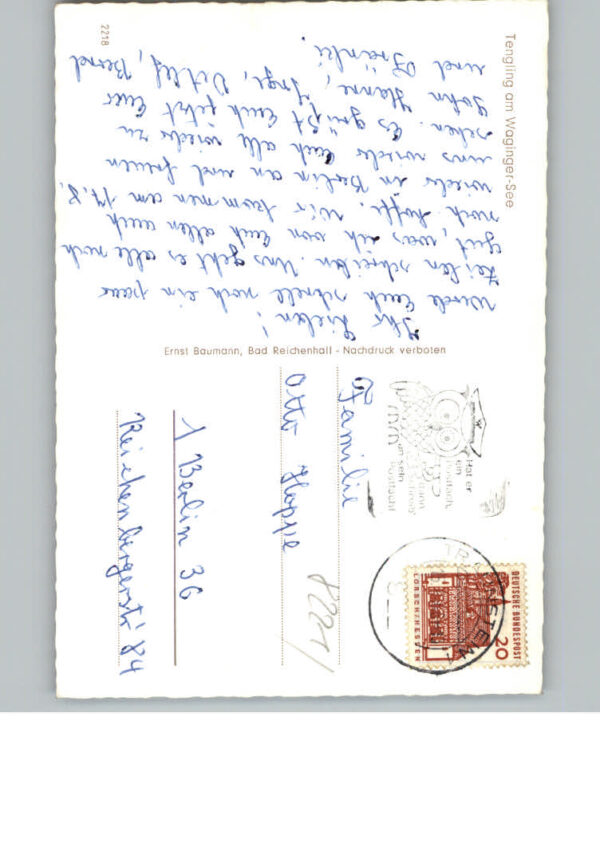 Tengling am Waginger-See
2218
Ihr Lieben!
werde Euch schnell noch ein paar
Zeilen schreiben. Uns geht es alle noch
gut, was ich von Euch allen auch
noch hoffe. Wir kommen am 14.8.
wieder in Berlin an und freuen
uns wieder Euch alle wieder zu
sehen. Es grüßt Euch jetzt Euer
Sohn Hanne, Inge, Detlef, Bernd
und Frank.
Ernst Baumann, Bad Reichenhall - Nachdruck verboten
Hat er
ein
Postfach,
dann
Familie
Otto Hoppe
1 Berlin 36
Reichenbergerstr 84
8221
DEUTSCHE BUNDESPOST
20
LORSCH/HESSEN